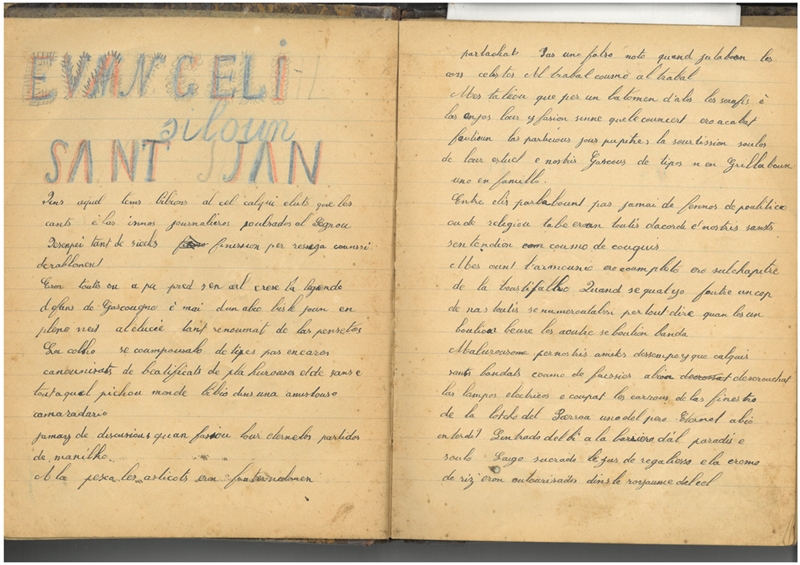 EVANGELI
siloun
SANT JAN
Dins aquel tems bibions al cel calqui eluts que les
cants è las innos journalieros poulrados al Segnou
Desempei tant de siecles finission per ressega coumssi
derabloment
Eron toutis ou a pu pred s'en art crese la legendo
d'efans de Gascougno è mai d'un abec bist joun en
pleno neit al clucié tant renoumat de las pensetos
La colho se coumpousabo de tipes pas encaros
canounisats de beatificats de pla hurouses et de sans e
tout aquel pichou monde bibió dins uno amistouso
camaradario
jamay de discussious quan fasiou lour eternelos partidos
de manilho
A la pesca les asticots eron fraternelomen
partachat Pas uno falso noto quand jutaboun les
cors celestes Al trabal coumo al trabal
Mes taléou que per un batomen d'alos les soufis è
les enjos lour y fasion sinne que le councert ero acabat
foutioun las particious jous pupitres la sourtission soulos
de lour estuch e nostris Gascous de tipos n'en grillaboun
uno en famillo
Entre elis parlaboun pas jamai de fennos de poulitico
ou de religiou tabe eran toutis d'acorde é nostris sants
s'entendion coumo de couquis
Mes ount l'armounio ero coumpleto ero sul chapitre
de la boustifaillo Quand se qualyo foutre un cop
de nas toutis se numeroutabon per tout dire quan les un
boulion beure les aoutre se boulion banda
Malurousomen per nostris amics dessempey que calquis
sants bandats coumo de fuessios abion desoruchat
las lampos electricos e coupat les carraous de las finestros
de la lotcho del Parroa uno del pero Eternel abió
enterdit l'entrado del bi a la barriero d'al paradis e
soulo l'aigo sucrado le jus de regalisso e la cremo
de riz eron autourisados dins le rouyaume del cel